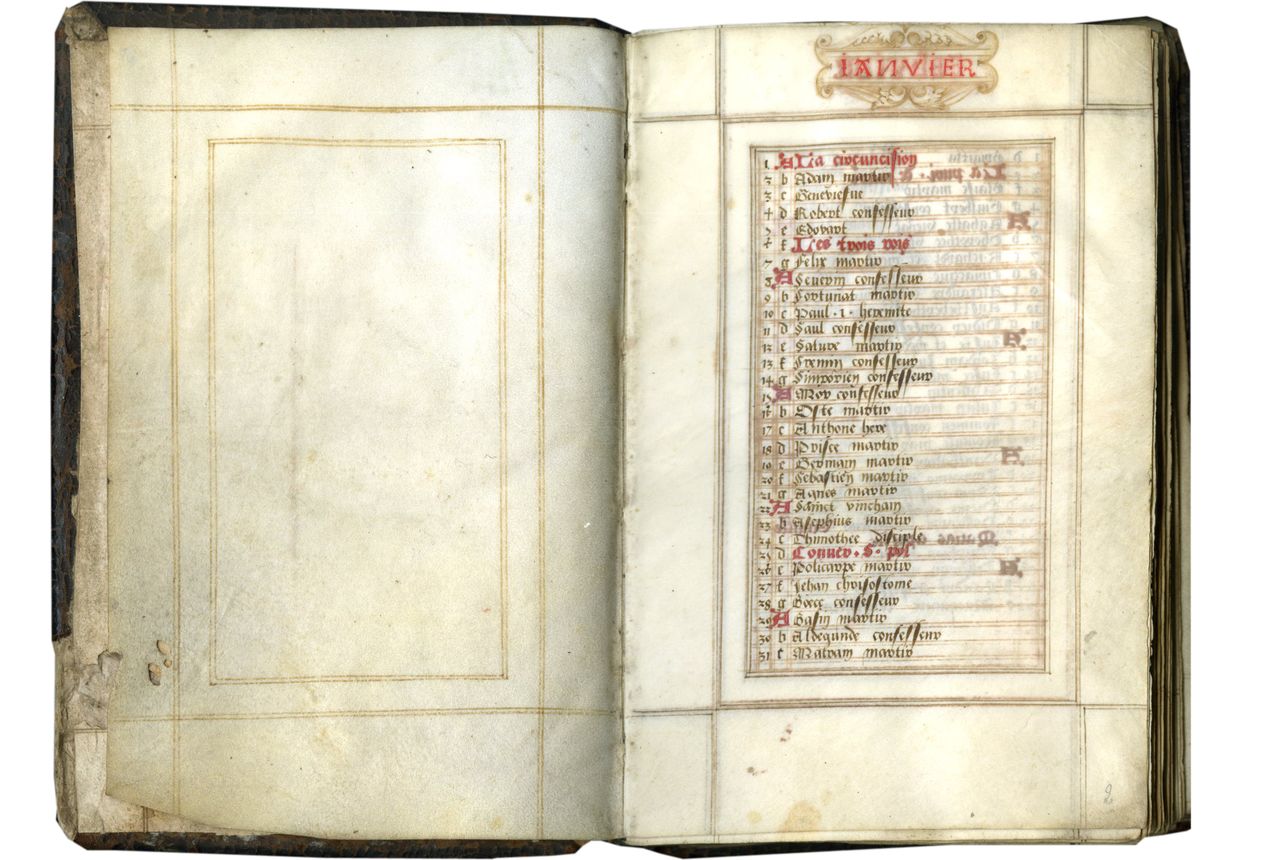 IANVIER
1 A La circuncision
2 b Adam martir
3 c Geneviefue
4 d Robert confesseur
5 e Edouart
6 f Les trois rois
7 g Felix martir
8 A Seuerin confesseur
9 b Fortunat martir
10 c Paul · 1 · heremite
11 d Saul confesseur
12 e Sature martir
13 f Fremin confesseur
14 g Simporien confesseur
15 A Mor confesseur
16 b Oste martir
17 c Anthone here
18 d Prisce martir
19 e Germain martir
20 f Sebastien martir
21 g Agnes martir
22 A Sainct vinchain
23 b Asephius martir
24 c Thimothee disciple
25 d Conuer · S · pol
26 e Policarpe martir
27 f Jehan chrisostome
28 g Boece confesseur
29 A Basin martir
30 b Aldegunde confesseur
31 c Matrain martir
2